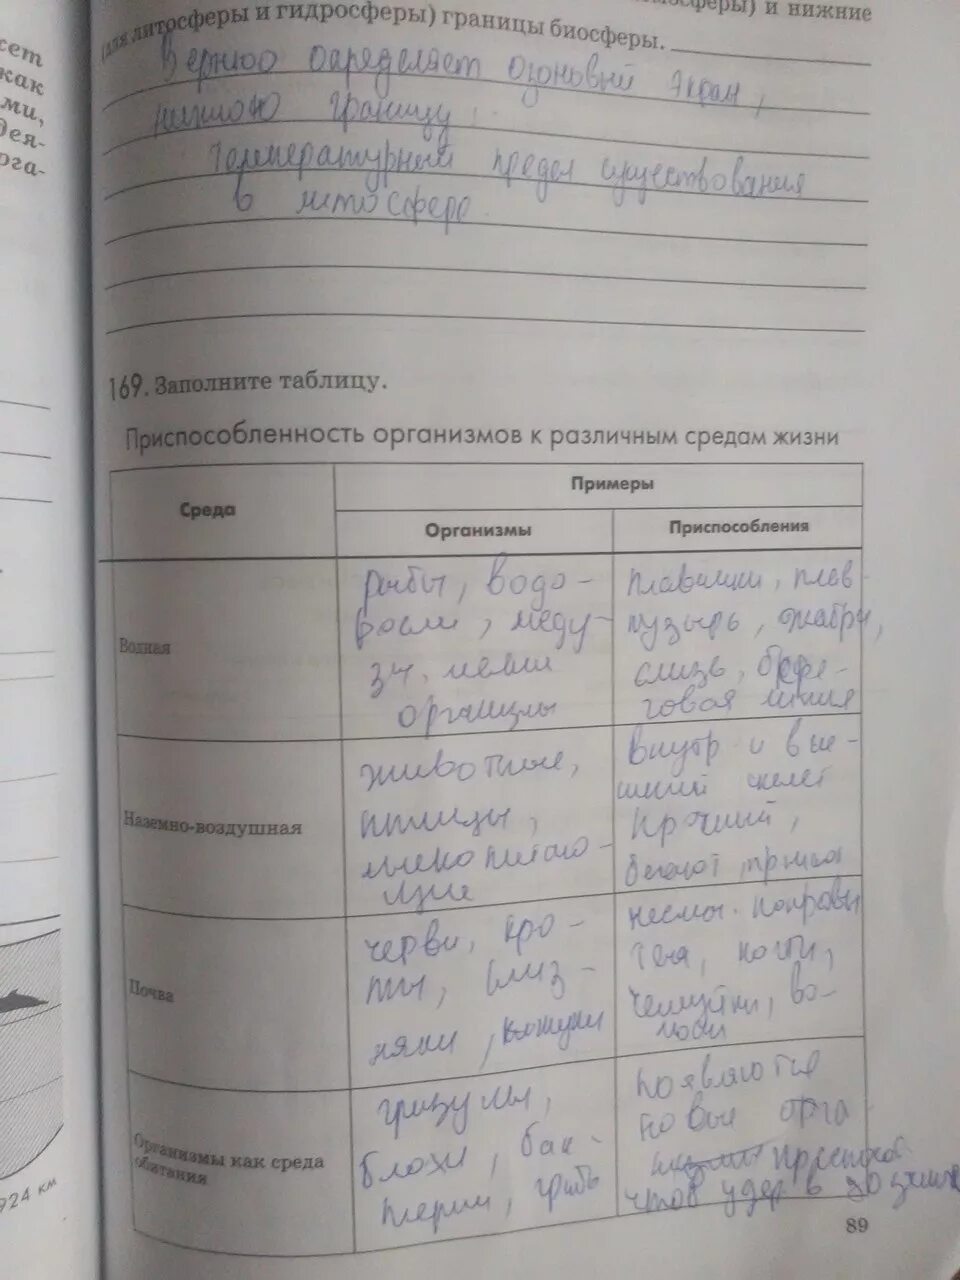 сет
как
ми,
дея-
рга-
и нижние
(для литосферы и гидросферы) границы биосферы.
Верхнюю определяет озоновый экран,
нижнюю границу
температурный предел существования
в литосфере
169. Заполните таблицу.
Приспособленность организмов к различным средам жизни
Среда
Примеры
Организмы
Приспособления
Водная
рыбы, водо-
росли, меду-
зы,
организмы
плавники, плав
пузырь, жабры,
слизь,
говая линия
Наземно-воздушная
животные,
птицы,
млекопитаю-
щие
внутр и вне-
шний скелет
прочный,
бегают,
Почва
черви, кро-
ты, слиз-
няки,
покровы
тела, когти,
чешуйки, во-
лоски
Организмы как среда
обитания
блохи, бак-
терии, грибы
появляются
новые орга
924 км
89